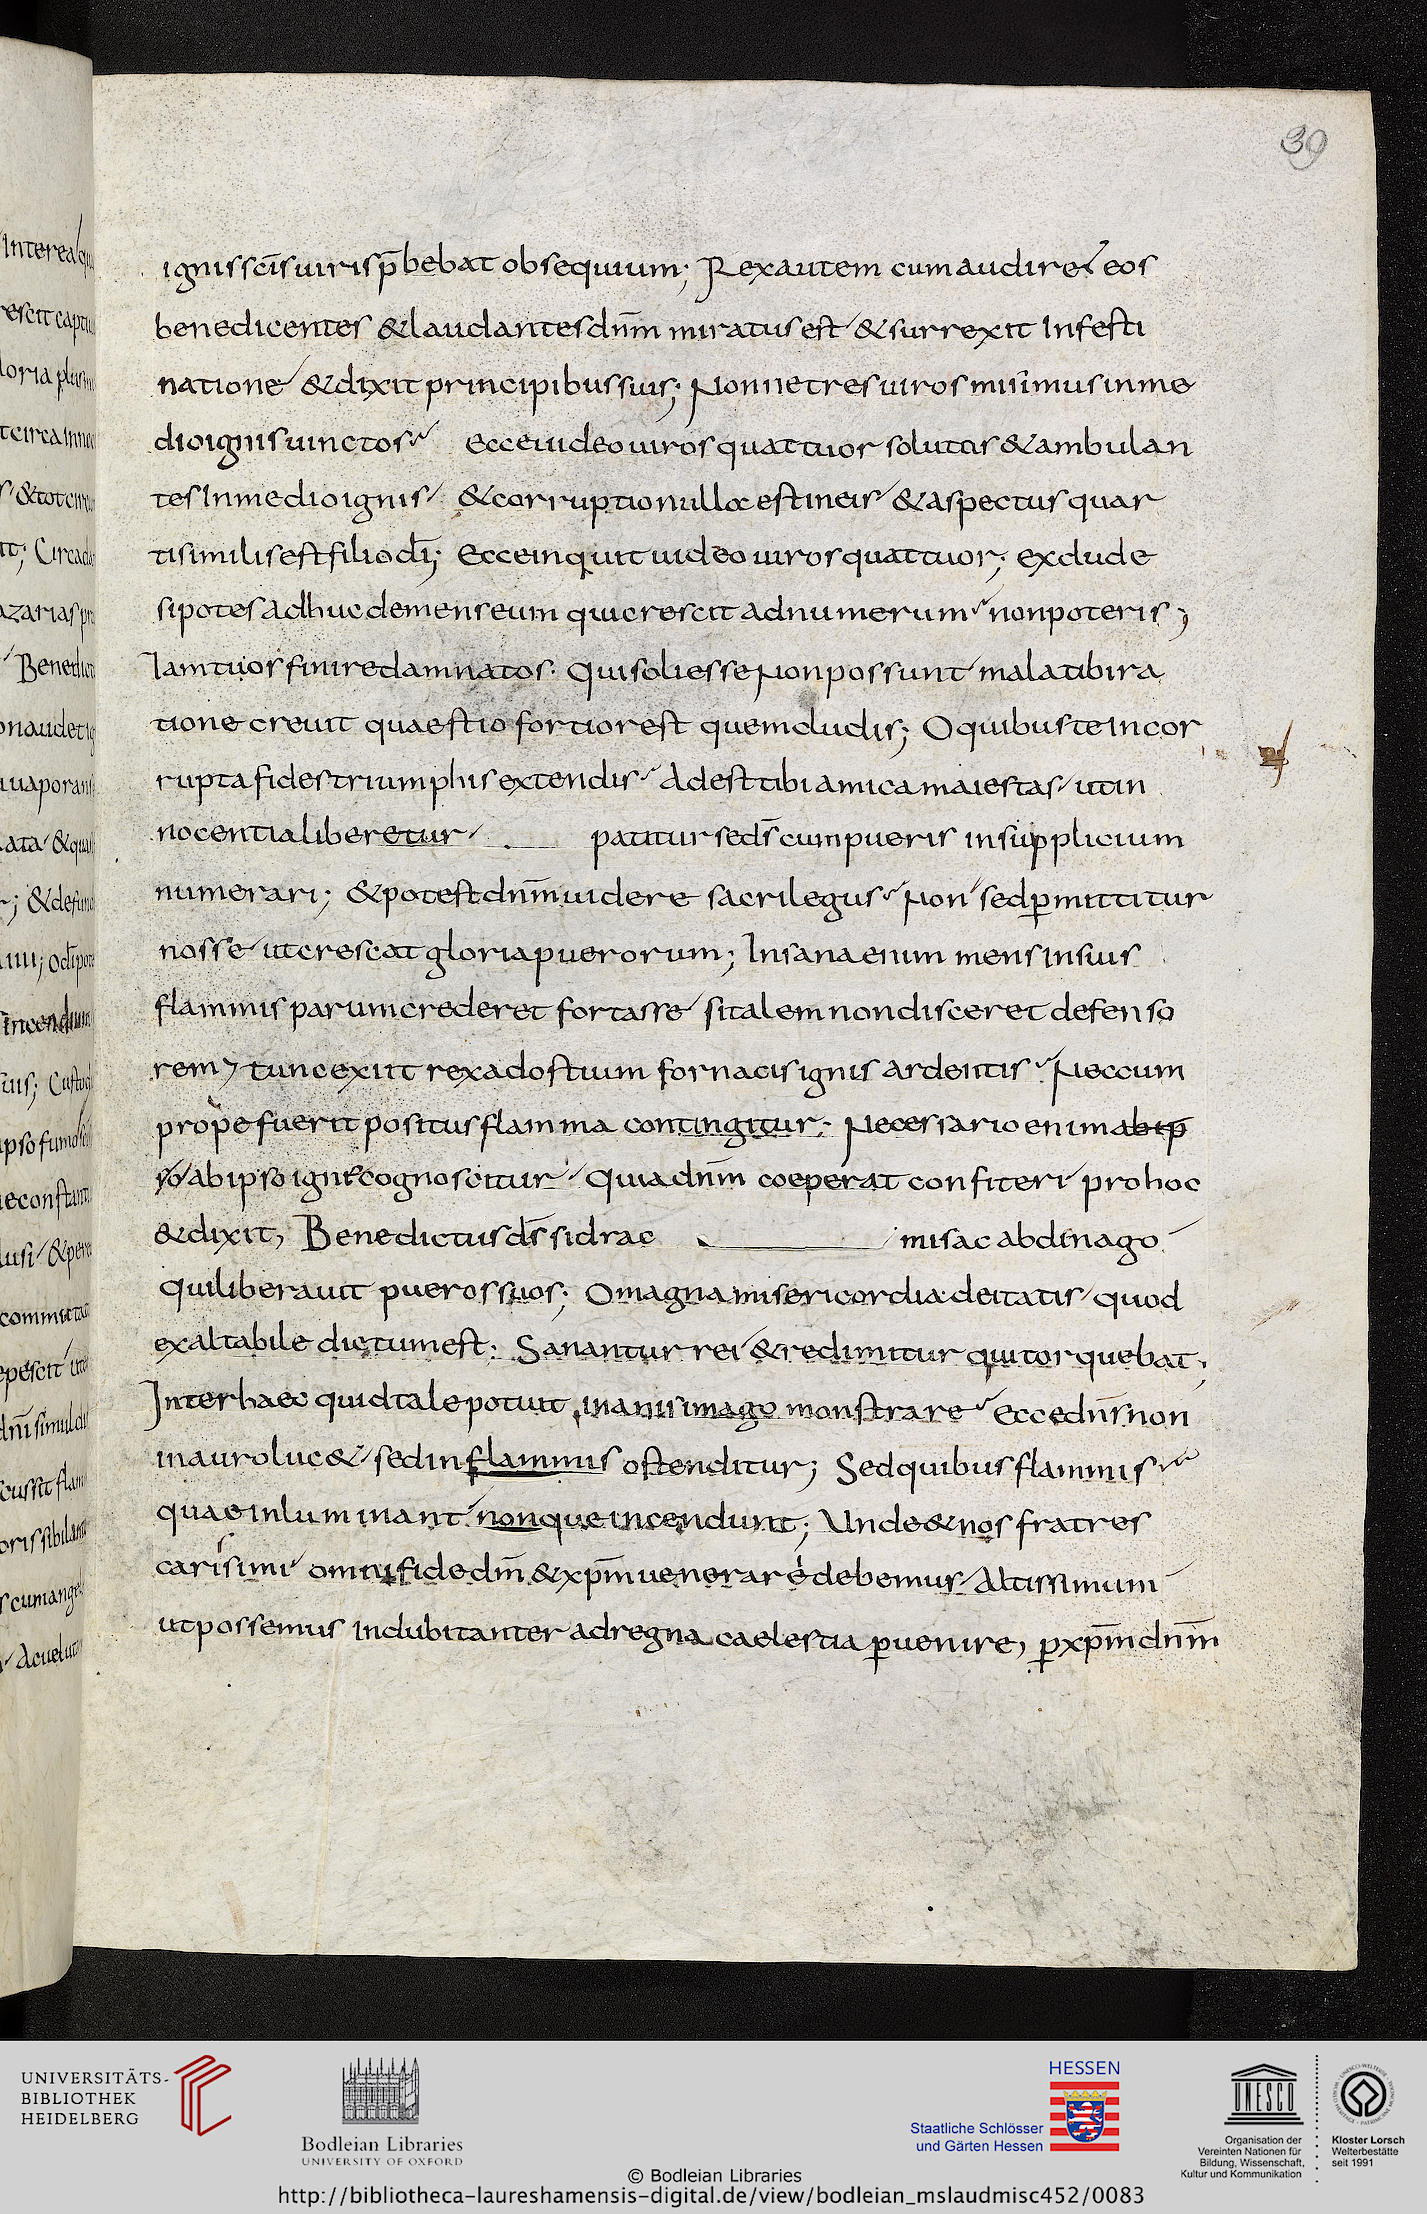 39
ignis sc̄is uiris p̄bebat obsequium; Rex autem cum audiret eos
benedicentes & laudantes dn̄m miratus est & surrexit In festi
natione & dixit principibus suis; Nonne tres uiros misimus in me
dio ignis uinctos ecce uideo uiros quattuor solutos & ambulan
tes In medio ignis & corruptio nulla est in eis & aspectus quar
ti similis est filio dī; Ecce inquit uideo uiros quattuor; exclude
si potes adhuc demens eum qui crescit ad numerum non poteris;
Iam tuos finire damnatos. Qui soli esse non possunt mala tibi ra
tione creuit quaestio fortior est quem cludis; O quibus te Incor
rupta fides triumphis extendis Adest tibi amica maiestas ut in
nocentia liberetur patitur se ds̄ cum pueris in supplicium
numerari; & potest dn̄m uidere sacrilegus Non sed p̄mittitur
nosse ut crescat gloria puerorum; Insana enim mens in suis
flammis parum crederet fortasse si talem non disceret defenso
rem; tunc exiit rex ad ostium fornacis ignis ardentis Nec cum
prope fuerit positus flamma contingitur; Necessario enim ab ip
so ab ipso igne cognoscitur Quia dn̄m coeperat confiteri pro hoc
& dixit, Benedictus ds̄ sidrac misac abdinago
Qui liberauit pueros suos; O magna misericordia deitatis quod
exaltabile dictum est; Sanantur rei & redimitur qui torquebat;
Inter haec quid tale potuit inanis imago monstrare Ecce dn̄s non
in auro luc& sed in flammis ostenditur; Sed quibus flammis
quae inluminant non que incendunt; Unde & nos fratres
carissimi omni fide dm̄ & xp̄m uenerare debemus Altissimum
ut possemus indubitanter ad regna caelestia p̄uenire, p̄ xp̄m dn̄m
UNIVERSITÄTS-
BIBLIOTHEK
HEIDELBERG
Bodleian Libraries
UNIVERSITY OF OXFORD
HESSEN
Staatliche Schlösser
und Gärten Hessen
UNESCO
Organisation der
Vereinten Nationen für
Bildung, Wissenschaft,
Kultur und Kommunikation
Kloster Lorsch
Welterbestätte
seit 1991
© Bodleian Libraries
http://bibliotheca-laureshamensis-digital.de/view/bodleian_mslaudmisc452/0083